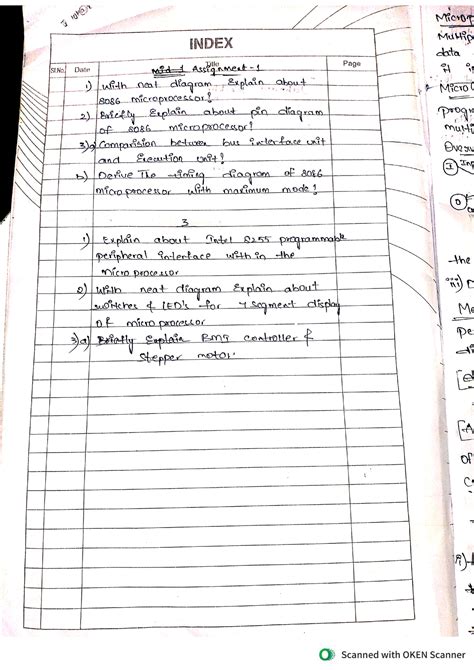 INDEX
Sl.No. Date Title Page
Mid-1 Assignment-1
1) With neat diagram Explain about
8086 microprocessor?
2) Briefly Explain about pin diagram
of 8086 microprocessor?
3)a) Comparision between bus interface unit
and Execution unit?
b) Derive The timing diagram of 8086
microprocessor with maximum mode?
3
1) Explain about Intel 8255 programmable
peripheral interface within the
Micro processor
2) With neat diagram Explain about
switches & LED's for 7 segment display
of micro processor
3)a) Briefly Explain DMA controller &
Stepper motor
Multip
data
Micro
progr
multi
-the
Of
Scanned with OKEN Scanner